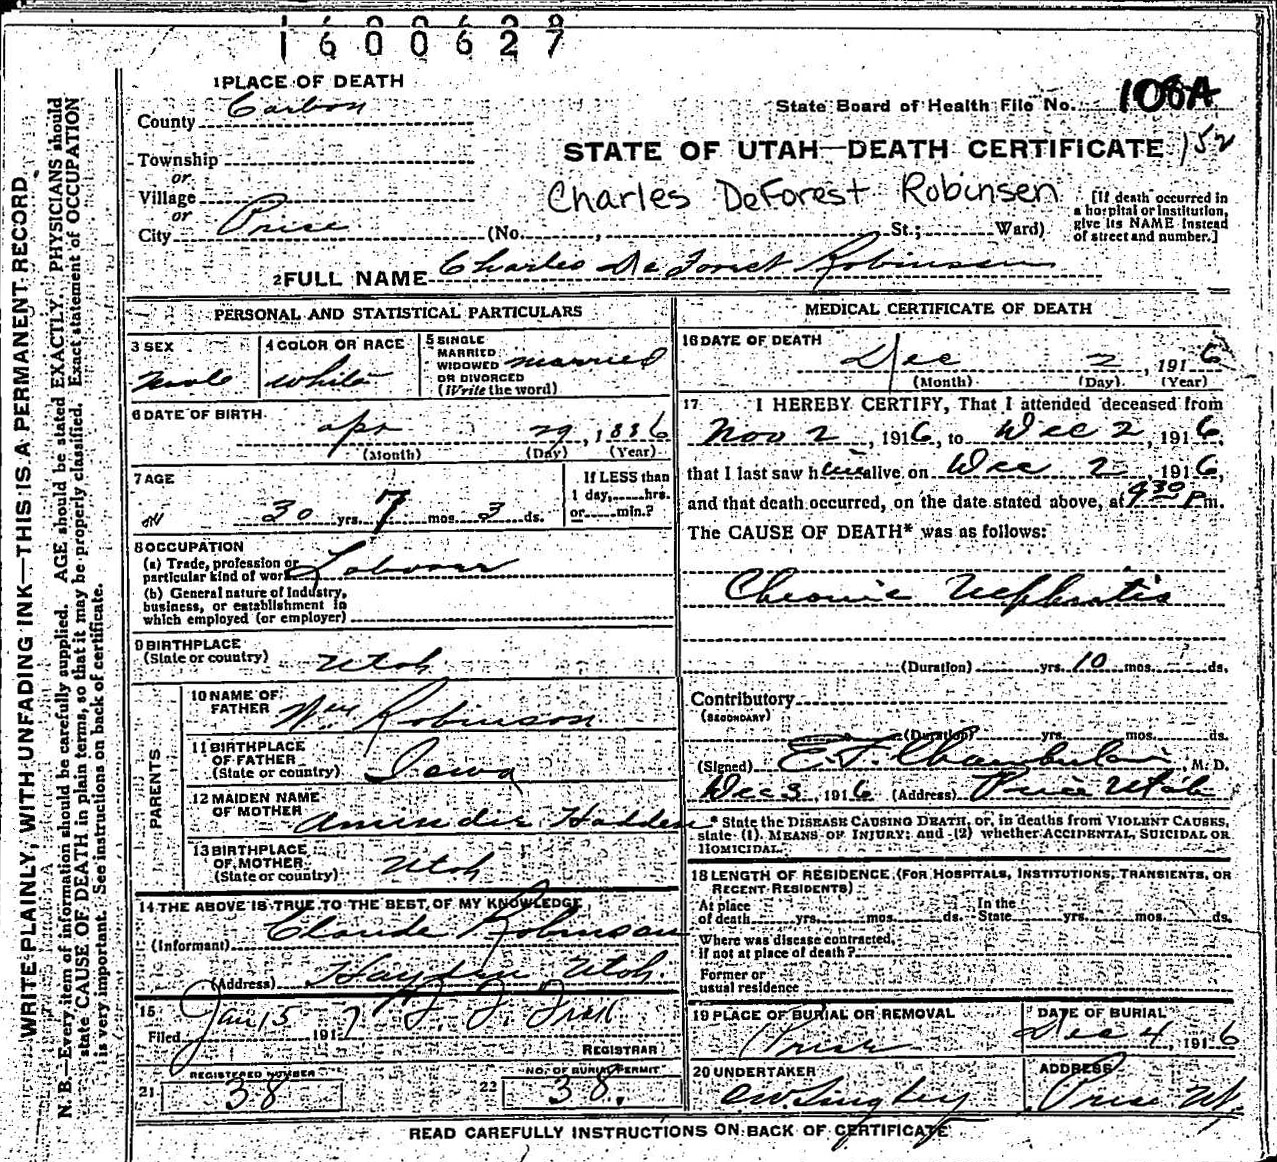 1600627
1 PLACE OF DEATH
County Carbon
State Board of Health File No. 106A
Township
or
Village
or
City Price (No. , St.; Ward)
STATE OF UTAH—DEATH CERTIFICATE 152
Charles DeForest Robinsen
[If death occurred in
a hospital or institution,
give its NAME instead
of street and number.]
2 FULL NAME Charles De Forest Robinsen
PERSONAL AND STATISTICAL PARTICULARS
3 SEX
male
4 COLOR OR RACE
white
5 SINGLE
MARRIED
WIDOWED
OR DIVORCED
(Write the word)
married
6 DATE OF BIRTH
Apr 29, 1886
(Month) (Day) (Year)
7 AGE
30 yrs. 7 mos. 3 ds.
If LESS than
1 day, hrs.
or min.?
8 OCCUPATION
(a) Trade, profession or
particular kind of work Laborer
(b) General nature of Industry,
business, or establishment in
which employed (or employer)
9 BIRTHPLACE
(State or country) Utah
PARENTS
10 NAME OF
FATHER Wm Robinson
11 BIRTHPLACE
OF FATHER
(State or country) Iowa
12 MAIDEN NAME
OF MOTHER Hadden
13 BIRTHPLACE
OF MOTHER
(State or country) Utah
14 THE ABOVE IS TRUE TO THE BEST OF MY KNOWLEDGE
(Informant) Claude Robinson
(Address) Hayden Utah
15
Filed Jan 15 1917
REGISTRAR
21 REGISTERED NUMBER
38
22 NO. OF BURIAL PERMIT
38.
MEDICAL CERTIFICATE OF DEATH
16 DATE OF DEATH
Dec 2, 1916
(Month) (Day) (Year)
17 I HEREBY CERTIFY, That I attended deceased from
Nov 2, 1916, to Dec 2, 1916,
that I last saw him alive on Dec 2 1916,
and that death occurred, on the date stated above, at 9 30 P m.
The CAUSE OF DEATH* was as follows:
Chronic Nephritis
(Duration) yrs. 10 mos. ds.
Contributory
(SECONDARY)
(Duration) yrs. mos. ds.
(Signed) E. F. Chamberlain, M. D.
Dec 3, 1916 (Address) Price Utah
* State the DISEASE CAUSING DEATH, or, in deaths from VIOLENT CAUSES,
state (1) MEANS OF INJURY; and (2) whether ACCIDENTAL, SUICIDAL OR
HOMICIDAL.
18 LENGTH OF RESIDENCE (FOR HOSPITALS, INSTITUTIONS, TRANSIENTS, OR
RECENT RESIDENTS)
At place
of death yrs. mos. ds.
In the
State yrs. mos. ds.
Where was disease contracted,
if not at place of death?
Former or
usual residence
19 PLACE OF BURIAL OR REMOVAL
Price
DATE OF BURIAL
Dec 4, 1916
20 UNDERTAKER
ADDRESS
Price Ut.
READ CAREFULLY INSTRUCTIONS ON BACK OF CERTIFICATE
WRITE PLAINLY, WITH UNFADING INK—THIS IS A PERMANENT RECORD.
N. B.—Every item of information should be carefully supplied. AGE should be stated EXACTLY. PHYSICIANS should
state CAUSE OF DEATH in plain terms, so that it may be properly classified. Exact statement of OCCUPATION
is very important. See instructions on back of certificate.